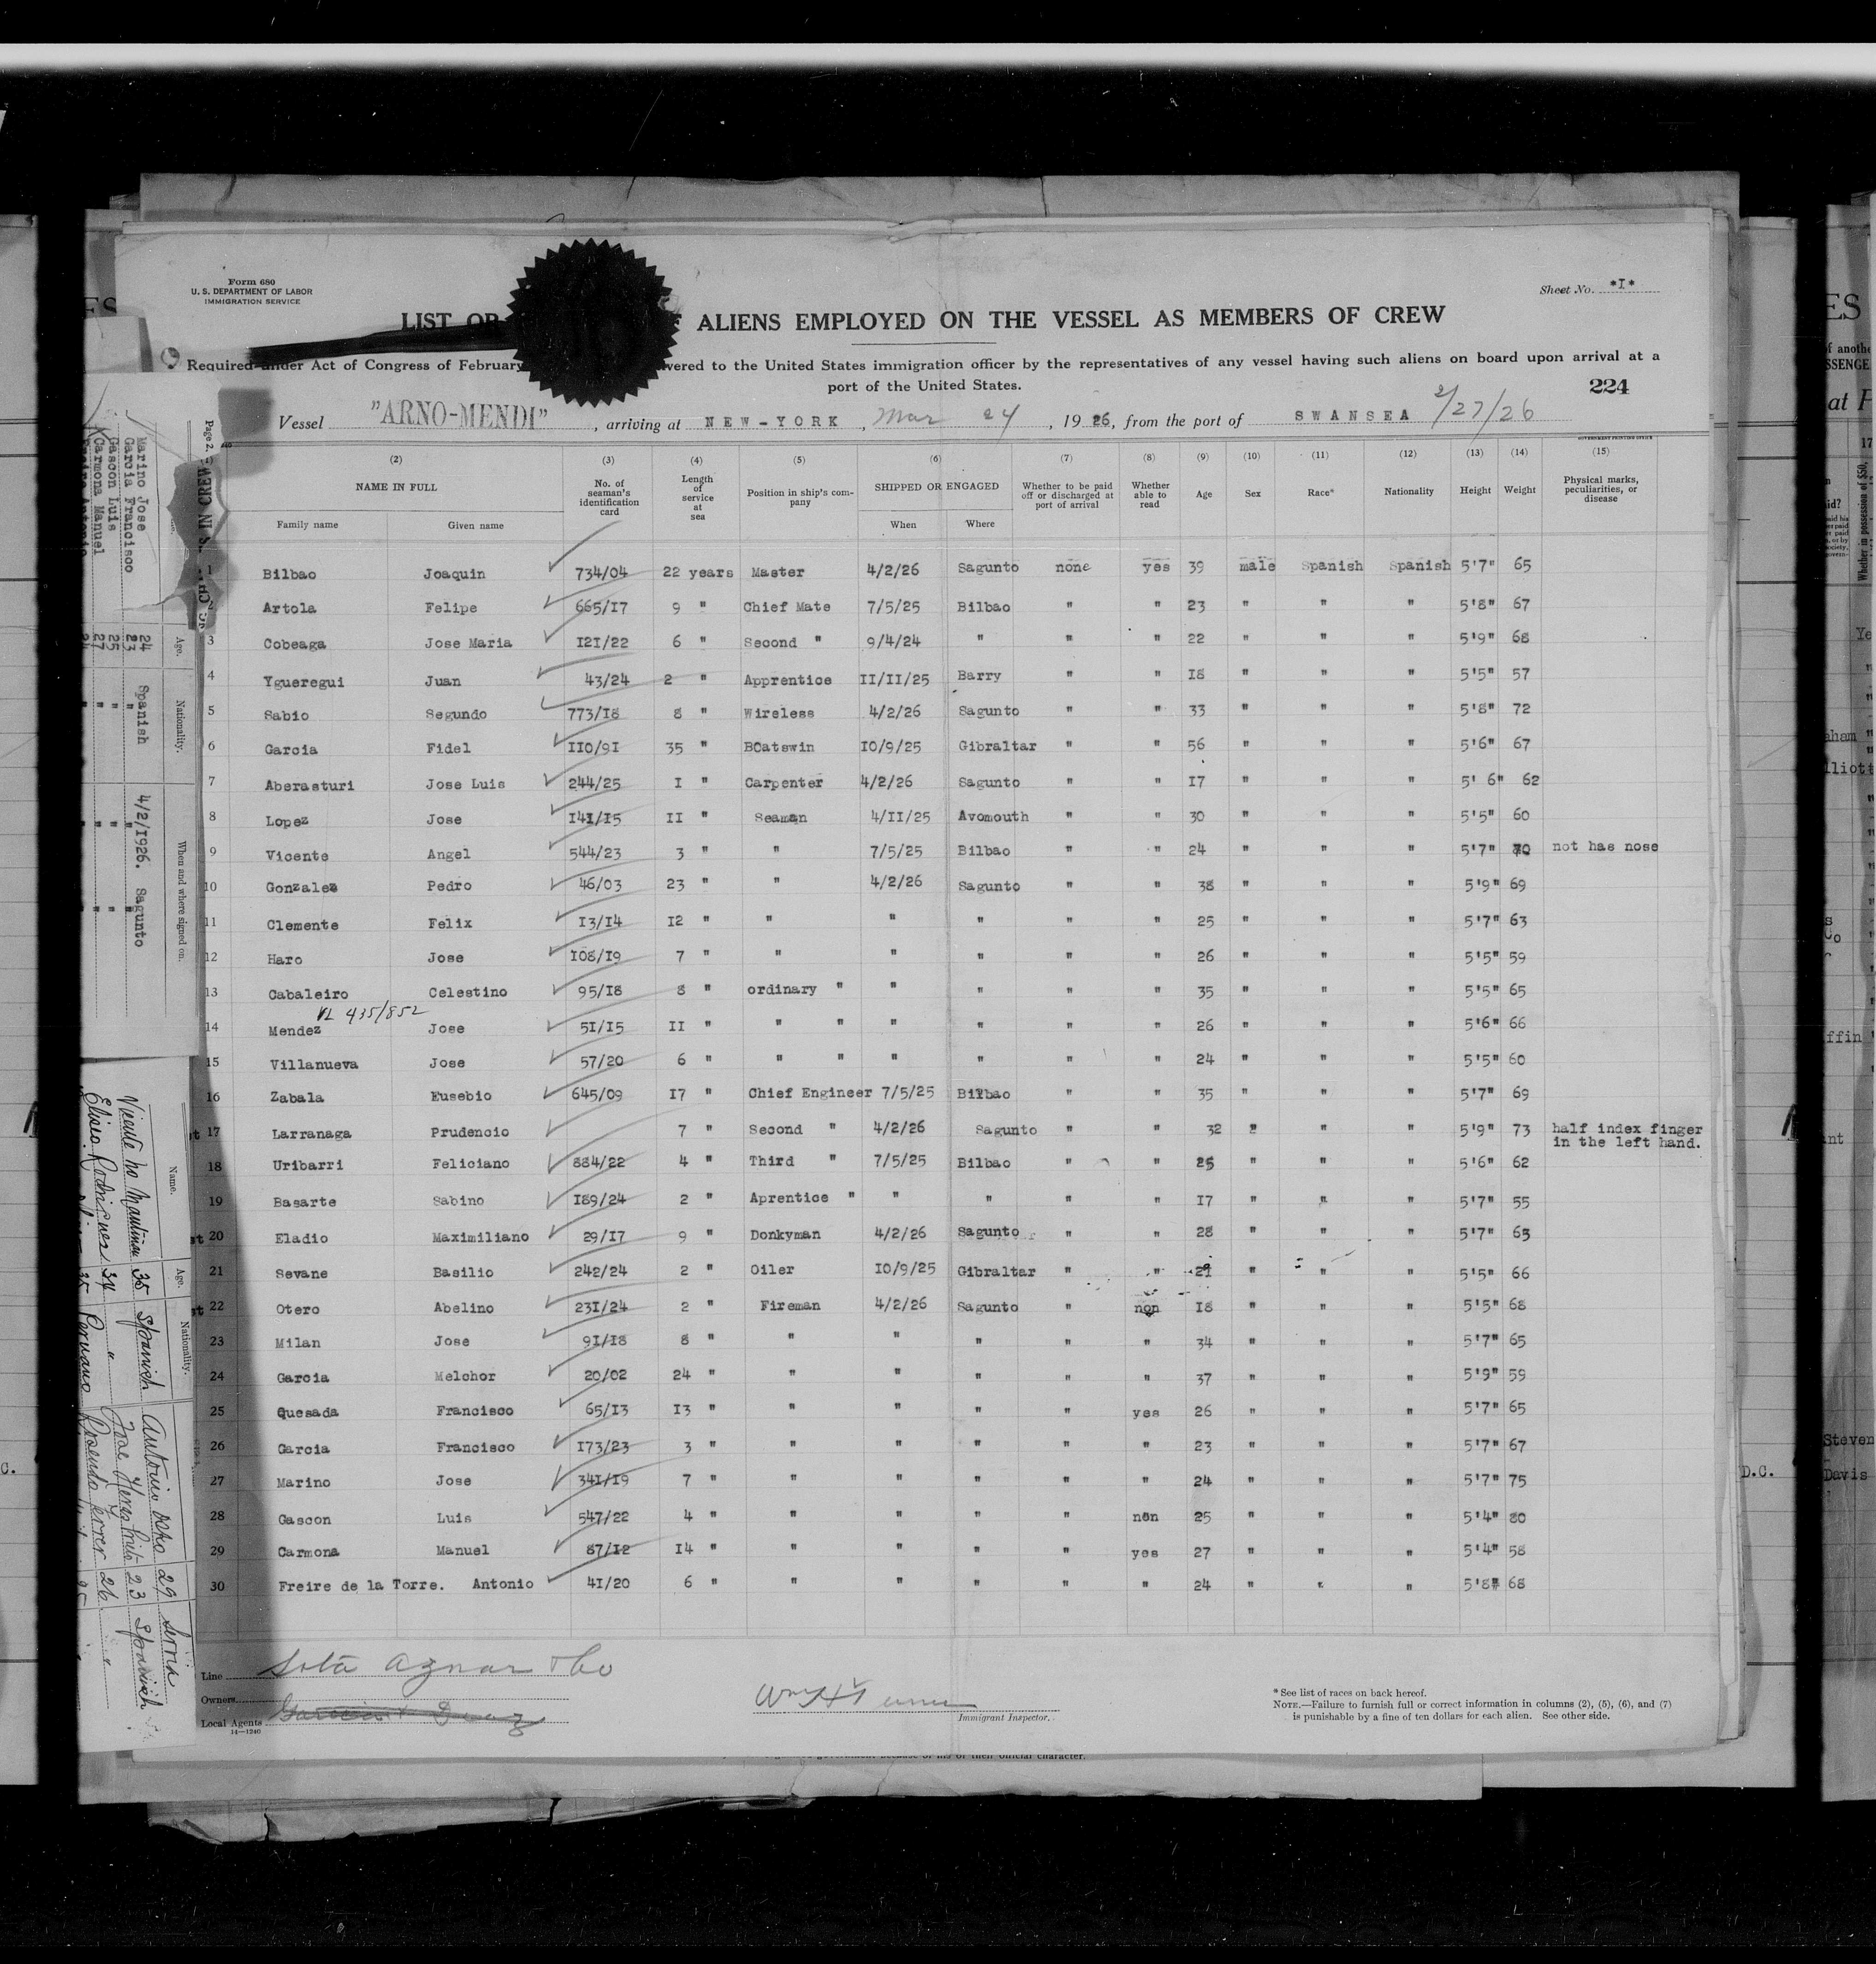 Form 680
U. S. DEPARTMENT OF LABOR
IMMIGRATION SERVICE
Sheet No. *I*
LIST OR ALIENS EMPLOYED ON THE VESSEL AS MEMBERS OF CREW
Required under Act of Congress of February vered to the United States immigration officer by the representatives of any vessel having such aliens on board upon arrival at a
port of the United States.
224
Vessel "ARNO-MENDI", arriving at NEW-YORK, Mar 24, 1926, from the port of SWANSEA 2/27/26
GOVERNMENT PRINTING OFFICE
(2) (3) (4) (5) (6) (7) (8) (9) (10) (11) (12) (13) (14) (15)
NAME IN FULL No. of seaman's identification card Length of service at sea Position in ship's company SHIPPED OR ENGAGED Whether to be paid off or discharged at port of arrival Whether able to read Age Sex Race* Nationality Height Weight Physical marks, peculiarities, or disease
Family name Given name When Where
1 Bilbao Joaquin 734/04 22 years Master 4/2/26 Sagunto none yes 39 male Spanish Spanish 5'7" 65
2 Artola Felipe 665/I7 9 " Chief Mate 7/5/25 Bilbao " " 23 " " " 5'8" 67
3 Cobeaga Jose Maria I2I/22 6 " Second " 9/4/24 " " " 22 " " " 5'9" 68
4 Ygueregui Juan 43/24 2 " Apprentice II/II/25 Barry " " I8 " " " 5'5" 57
5 Sabio Segundo 773/I8 8 " Wireless 4/2/26 Sagunto " " 33 " " " 5'8" 72
6 Garcia Fidel II0/9I 35 " BOatswin I0/9/25 Gibraltar " " 56 " " " 5'6" 67
7 Aberasturi Jose Luis 244/25 I " Carpenter 4/2/26 Sagunto " " I7 " " " 5' 6" 62
8 Lopez Jose I4I/I5 II " Seaman 4/II/25 Avomouth " " 30 " " " 5'5" 60
9 Vicente Angel 544/23 3 " " 7/5/25 Bilbao " " 24 " " " 5'7" 70 not has nose
10 Gonzalez Pedro 46/03 23 " " 4/2/26 Sagunto " " 38 " " " 5'9" 69
11 Clemente Felix I3/I4 I2 " " " " " " 25 " " " 5'7" 63
12 Haro Jose I08/I9 7 " " " " " " 26 " " " 5'5" 59
13 Cabaleiro Celestino 95/I8 8 " ordinary " " " " " 35 " " " 5'5" 65
VL 435/852
14 Mendez Jose 5I/I5 II " " " " " " " 26 " " " 5'6" 66
15 Villanueva Jose 57/20 6 " " " " " " " 24 " " " 5'5" 60
16 Zabala Eusebio 645/09 I7 " Chief Engineer 7/5/25 Bilbao " " 35 " " " 5'7" 69
17 Larranaga Prudencio 7 " Second " 4/2/26 Sagunto " " 32 " " " 5'9" 73 half index finger
in the left hand.
18 Uribarri Feliciano 884/22 4 " Third " 7/5/25 Bilbao " " 25 " " " 5'6" 62
19 Basarte Sabino I89/24 2 " Aprentice " " " " " I7 " " " 5'7" 55
20 Eladio Maximiliano 29/I7 9 " Donkyman 4/2/26 Sagunto " " 28 " " " 5'7" 63
21 Sevane Basilio 242/24 2 " Oiler I0/9/25 Gibraltar " " 21 " " " 5'5" 66
22 Otero Abelino 23I/24 2 " Fireman 4/2/26 Sagunto " non I8 " " " 5'5" 68
23 Milan Jose 9I/I8 8 " " " " " " 34 " " " 5'7" 65
24 Garcia Melchor 20/02 24 " " " " " " 37 " " " 5'9" 59
25 Quesada Francisco 65/I3 I3 " " " " " yes 26 " " " 5'7" 65
26 Garcia Francisco I73/23 3 " " " " " " 23 " " " 5'7" 67
27 Marino Jose 34I/I9 7 " " " " " " 24 " " " 5'7" 75
28 Gascon Luis 547/22 4 " " " " " non 25 " " " 5'4" 80
29 Carmona Manuel 87/I2 I4 " " " " " yes 27 " " " 5'4" 58
30 Freire de la Torre. Antonio 4I/20 6 " " " " " " 24 " " " 5'8" 68
Line Sota Aznar & Co
Owners
Local Agents Garcia & Diaz
14—1240
Wm H
Immigrant Inspector.
* See list of races on back hereof.
NOTE.—Failure to furnish full or correct information in columns (2), (5), (6), and (7)
is punishable by a fine of ten dollars for each alien. See other side.
Page 2.
Age. Nationality. When and where signed on.
Marino Jose 24 Spanish 4/2/I926. Sagunto
Garcia Francisco 23 " " "
Gascon Luis 25 " " "
Carmona Manuel 27 " " "
Name. Age. Nationality.
35 Spanish Antonio 29
Eliseo Rodriguez 34 " Jose 23 Spanish
35 Peruano Rosendo Ferrer 26 "
D.C.
Steven
Davis